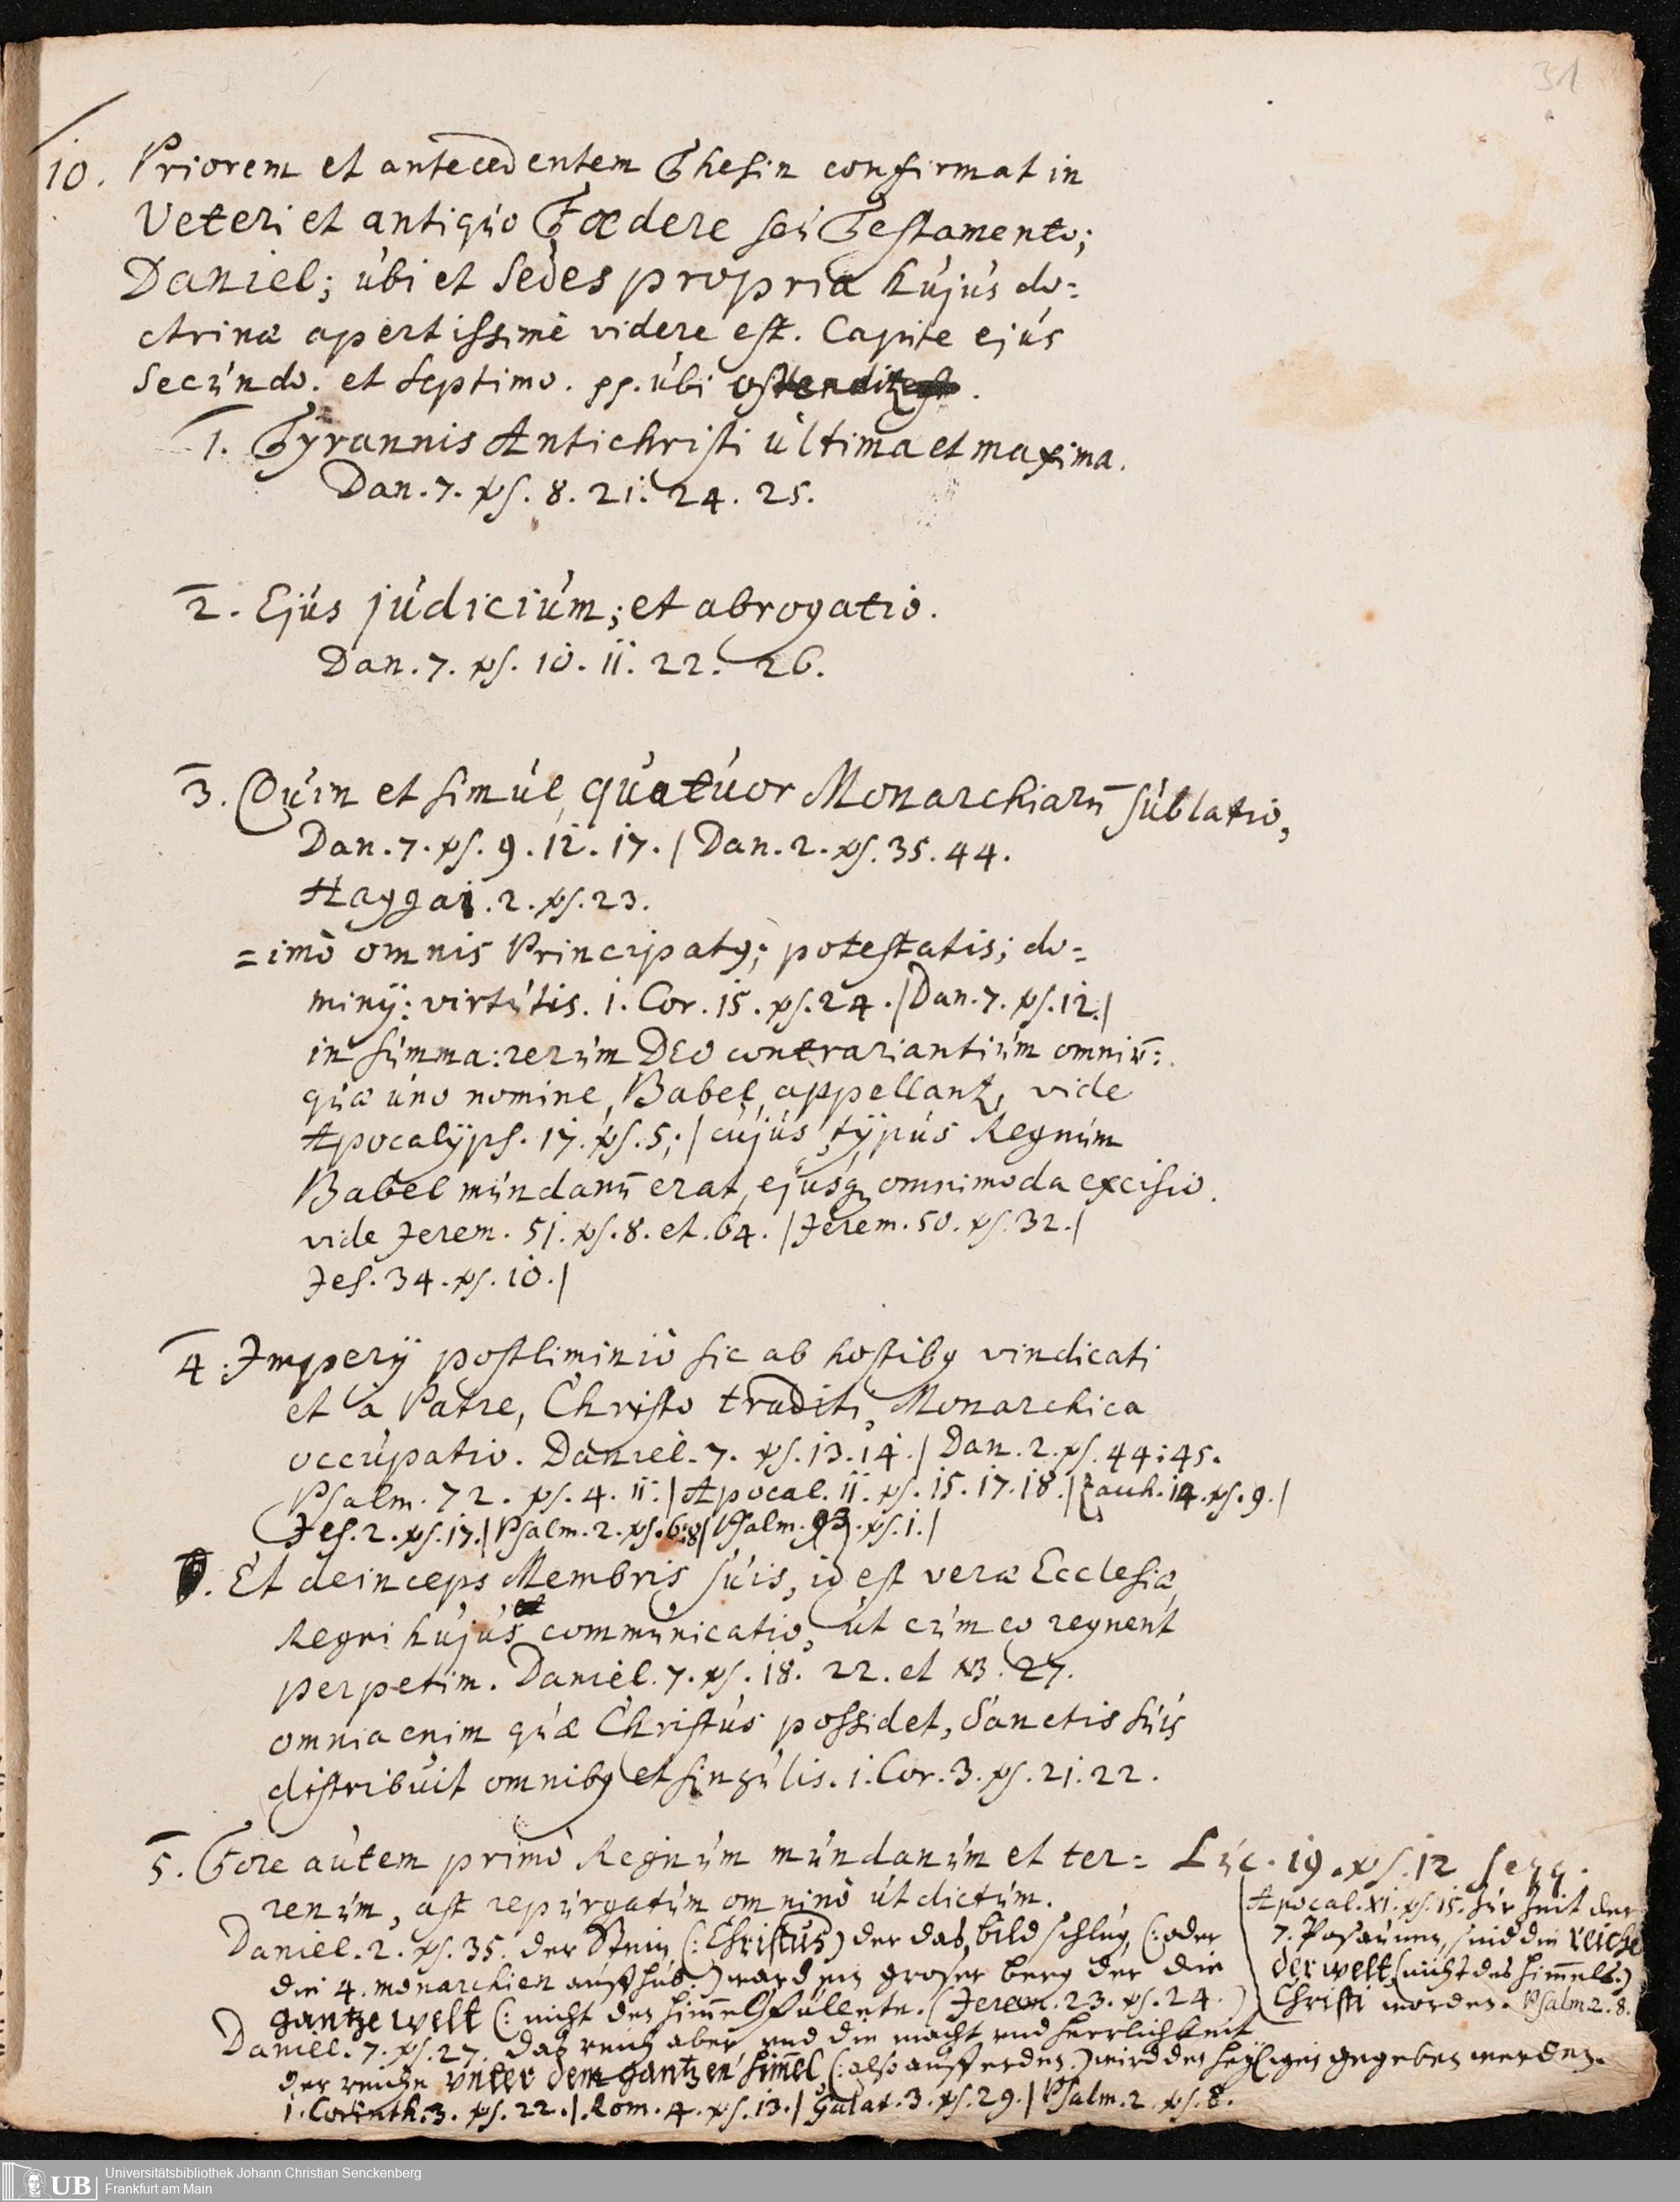 31
10. Priorem et antecedentem Thesin confirmat in
Veteri et antiquo Fœdere seu Testamento;
Daniel; ubi et sedes propria hujus do=
ctrinæ apertissimè videre est. Capite ejus
secundo. et septimo. pp. ubi
1. Tyrannis Antichristi ultima et maxima.
Dan. 7. vs. 8. 21. 24. 25.
2. Ejus judicium; et abrogatio.
Dan. 7. vs. 10. 11. 22. 26.
3. Quin et simul, quatuor Monarchiarū sublatio,
Dan. 7. vs. 9. 12. 17. / Dan. 2. vs. 35. 44.
Haggai. 2. vs. 23.
=imò omnis Principatꝯ; potestatis; do=
minÿ: virtutis. 1. Cor. 15. vs. 24. / Dan. 7. vs. 12. /
in summa: rerum DEO contrariantium omniū:
quæ uno nomine, Babel, appellantꝛ, vide
Apocalÿps. 17. vs. 5; / cujus tÿpus Regnum
Babel mundanū erat, ejusqꝫ omnimoda excisio.
vide Jerem. 51. vs. 8. et. 64. / Jerem. 50. vs. 32. /
Jes. 34. vs. 10. /
4. Imperÿ postliminiò sic ab hostibꝯ vindicati
et à Patre, Christo traditi, Monarchica
occupatio. Daniel. 7. vs. 13. 14. / Dan. 2. vs. 44: 45.
Psalm. 72. vs. 4. 11. / Apocal. 11. vs. 15. 17. 18. / Zach. 14. vs. 9. /
Jes. 2. vs. 17. / Psalm. 2. vs. 6: 8 / Psalm. 93. vs. 1. /
Et deinceps Membris suis, id est veræ Ecclesiæ
Regni hujus communicatio, ut cum eo regnent
perpetim. Daniel. 7. vs. 18. 22. et 27.
omnia enim quæ Christus possidet, Sanctis suis
distribuit omnibꝯ et singulis. 1. Cor. 3. vs. 21. 22.
5. Fore autem primò Regnum mundanum et ter=
renum, ast repurgatum omninò ut dictum.
Luc. 19. vs. 12 seqq.
Apocal. XI. vs. 15. zur zeit der
7. Posaunen, sind die reiche
der welt (nicht des him̄els:)
Christi worden. Psalm 2. 8.
Daniel. 2. vs. 35. der Stein (: Christus) der das bild schlug, (: oder
die 4. monarchien auffhub:) ward ein groser berg der die
gantze welt (: nicht den him̄el) füllete. (Jerem. 23. vs. 24.)
Daniel. 7. vs. 27. daß reich aber, und die macht und herrlichkeit
der reiche unter dem gantzen him̄el, (: also auff erden:) wird den heyligen gegeben werden.
1. Corinth: 3. vs. 22. /. Rom. 4. vs. 13. / Galat. 3. vs. 29. / Psalm. 2. vs. 8.
UB
Universitätsbibliothek Johann Christian Senckenberg
Frankfurt am Main